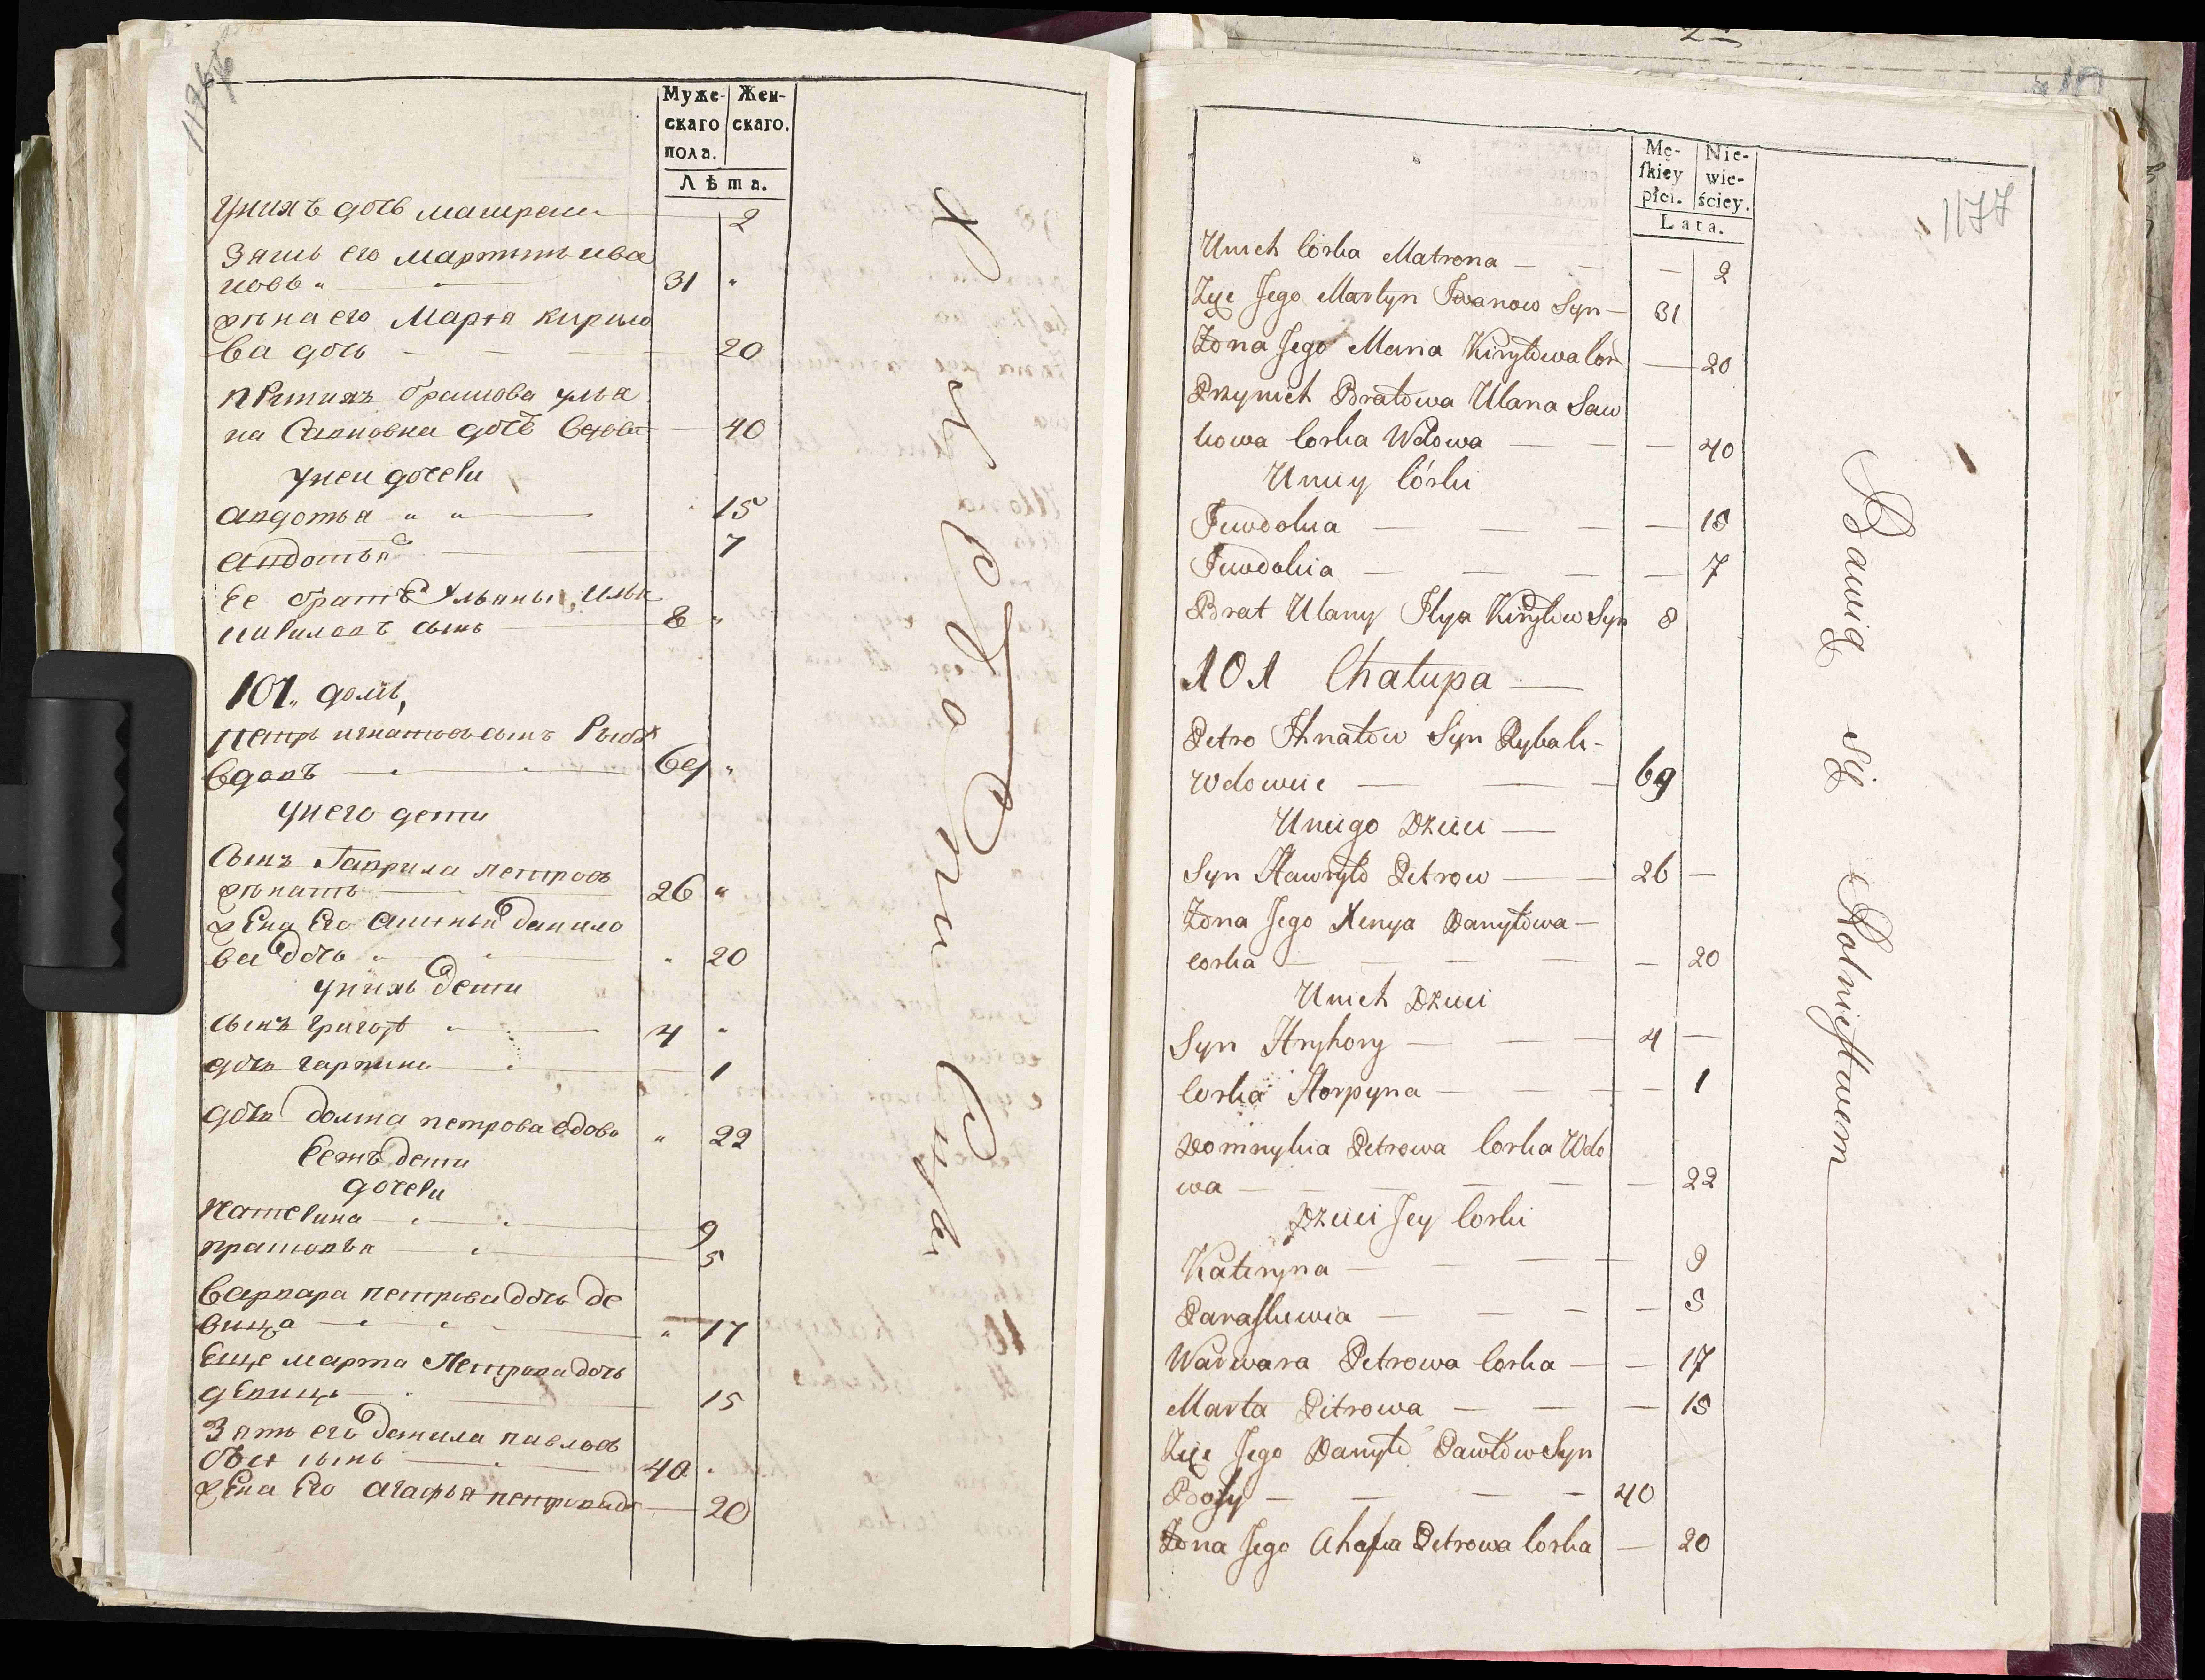 1176
Муже-
скаго
пола.
Жен-
скаго.
Лѣта.
Унихъ дочь матрена 2
Зять его мартинъ ива
новъ 31
жѣна его Мария кирило
ва дочь 20
братова улья
на дочъ вдова 40
унеи дочеки
авдотья 15
авдотья 7
Ее братъ Ульяны, Илья
сынъ 8
101. домъ,
петръ игнатовъ сынъ Рыбак
вдовъ 69
унего дети
Сынъ Гаврила петровъ
жѣнатъ 26
жена Его данило
ва дочь 20
унихъ дети
сынъ григорѣ 4
дочь гарпина 1
дочь домна петрова вдова 22
Еежъ дети
дочеки
Катерина 9
прасковья 5
Варвара петрова дочь де
вица 17
Еще марта Петрова дочь
девица 15
Зять его данила павловъ
сынъ 40
жена Его агафья петрова до 20
Хлебопашца
1177
Mę-
skiey
płci.
Nie-
wie-
ściey.
Lata.
Unich Córka Matrona 2
Zięć Jego Martyn Iwanow Syn 31
Żona Jego Maria Kiryłowa Cór 20
Przynich Bratowa Ulana Saw
kowa Corka Wdowa 40
Unieij Córki
Juwdokia 15
Juwdokia 7
Brat Ulany Ilya Kiryłow Syn 8
101 Chałupa
Petro Ihnatow Syn Rybak
Wdowiec 69
Uniego Dzieci
Syn Hawryło Petrow 26
Żona Jego Xenya Danyłowa
Corka 20
Unich Dzieci
Syn Hryhory 4
Corka Horpyna 1
Domnykia Petrowa Corka Wdo
wa 22
Dzieci Jey Corki
Kateryna 9
Paraskiewia 5
Warwara Petrowa Corka 17
Marta Petrowa 15
Zięć Jego Danyło Pawłow Syn
Bosy 40
Żona Jego Ahafia Petrowa Corka 20
Bawią się Rolnictwem